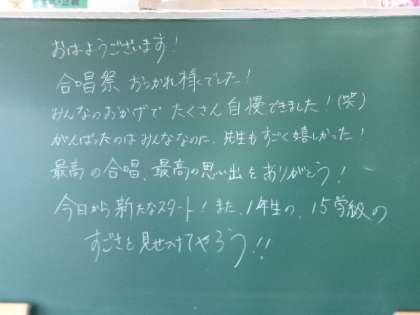 おはようございます!
合唱祭 おつかれ様でした!
みんなのおかげで たくさん自慢できました!(笑)
がんばったのはみんななのに、先生もすごく嬉しかった!
最高の合唱、最高の思い出をありがとう!
今日から新たなスタート!また、1年生の、15学級の
すごさを見せつけてやろう!!